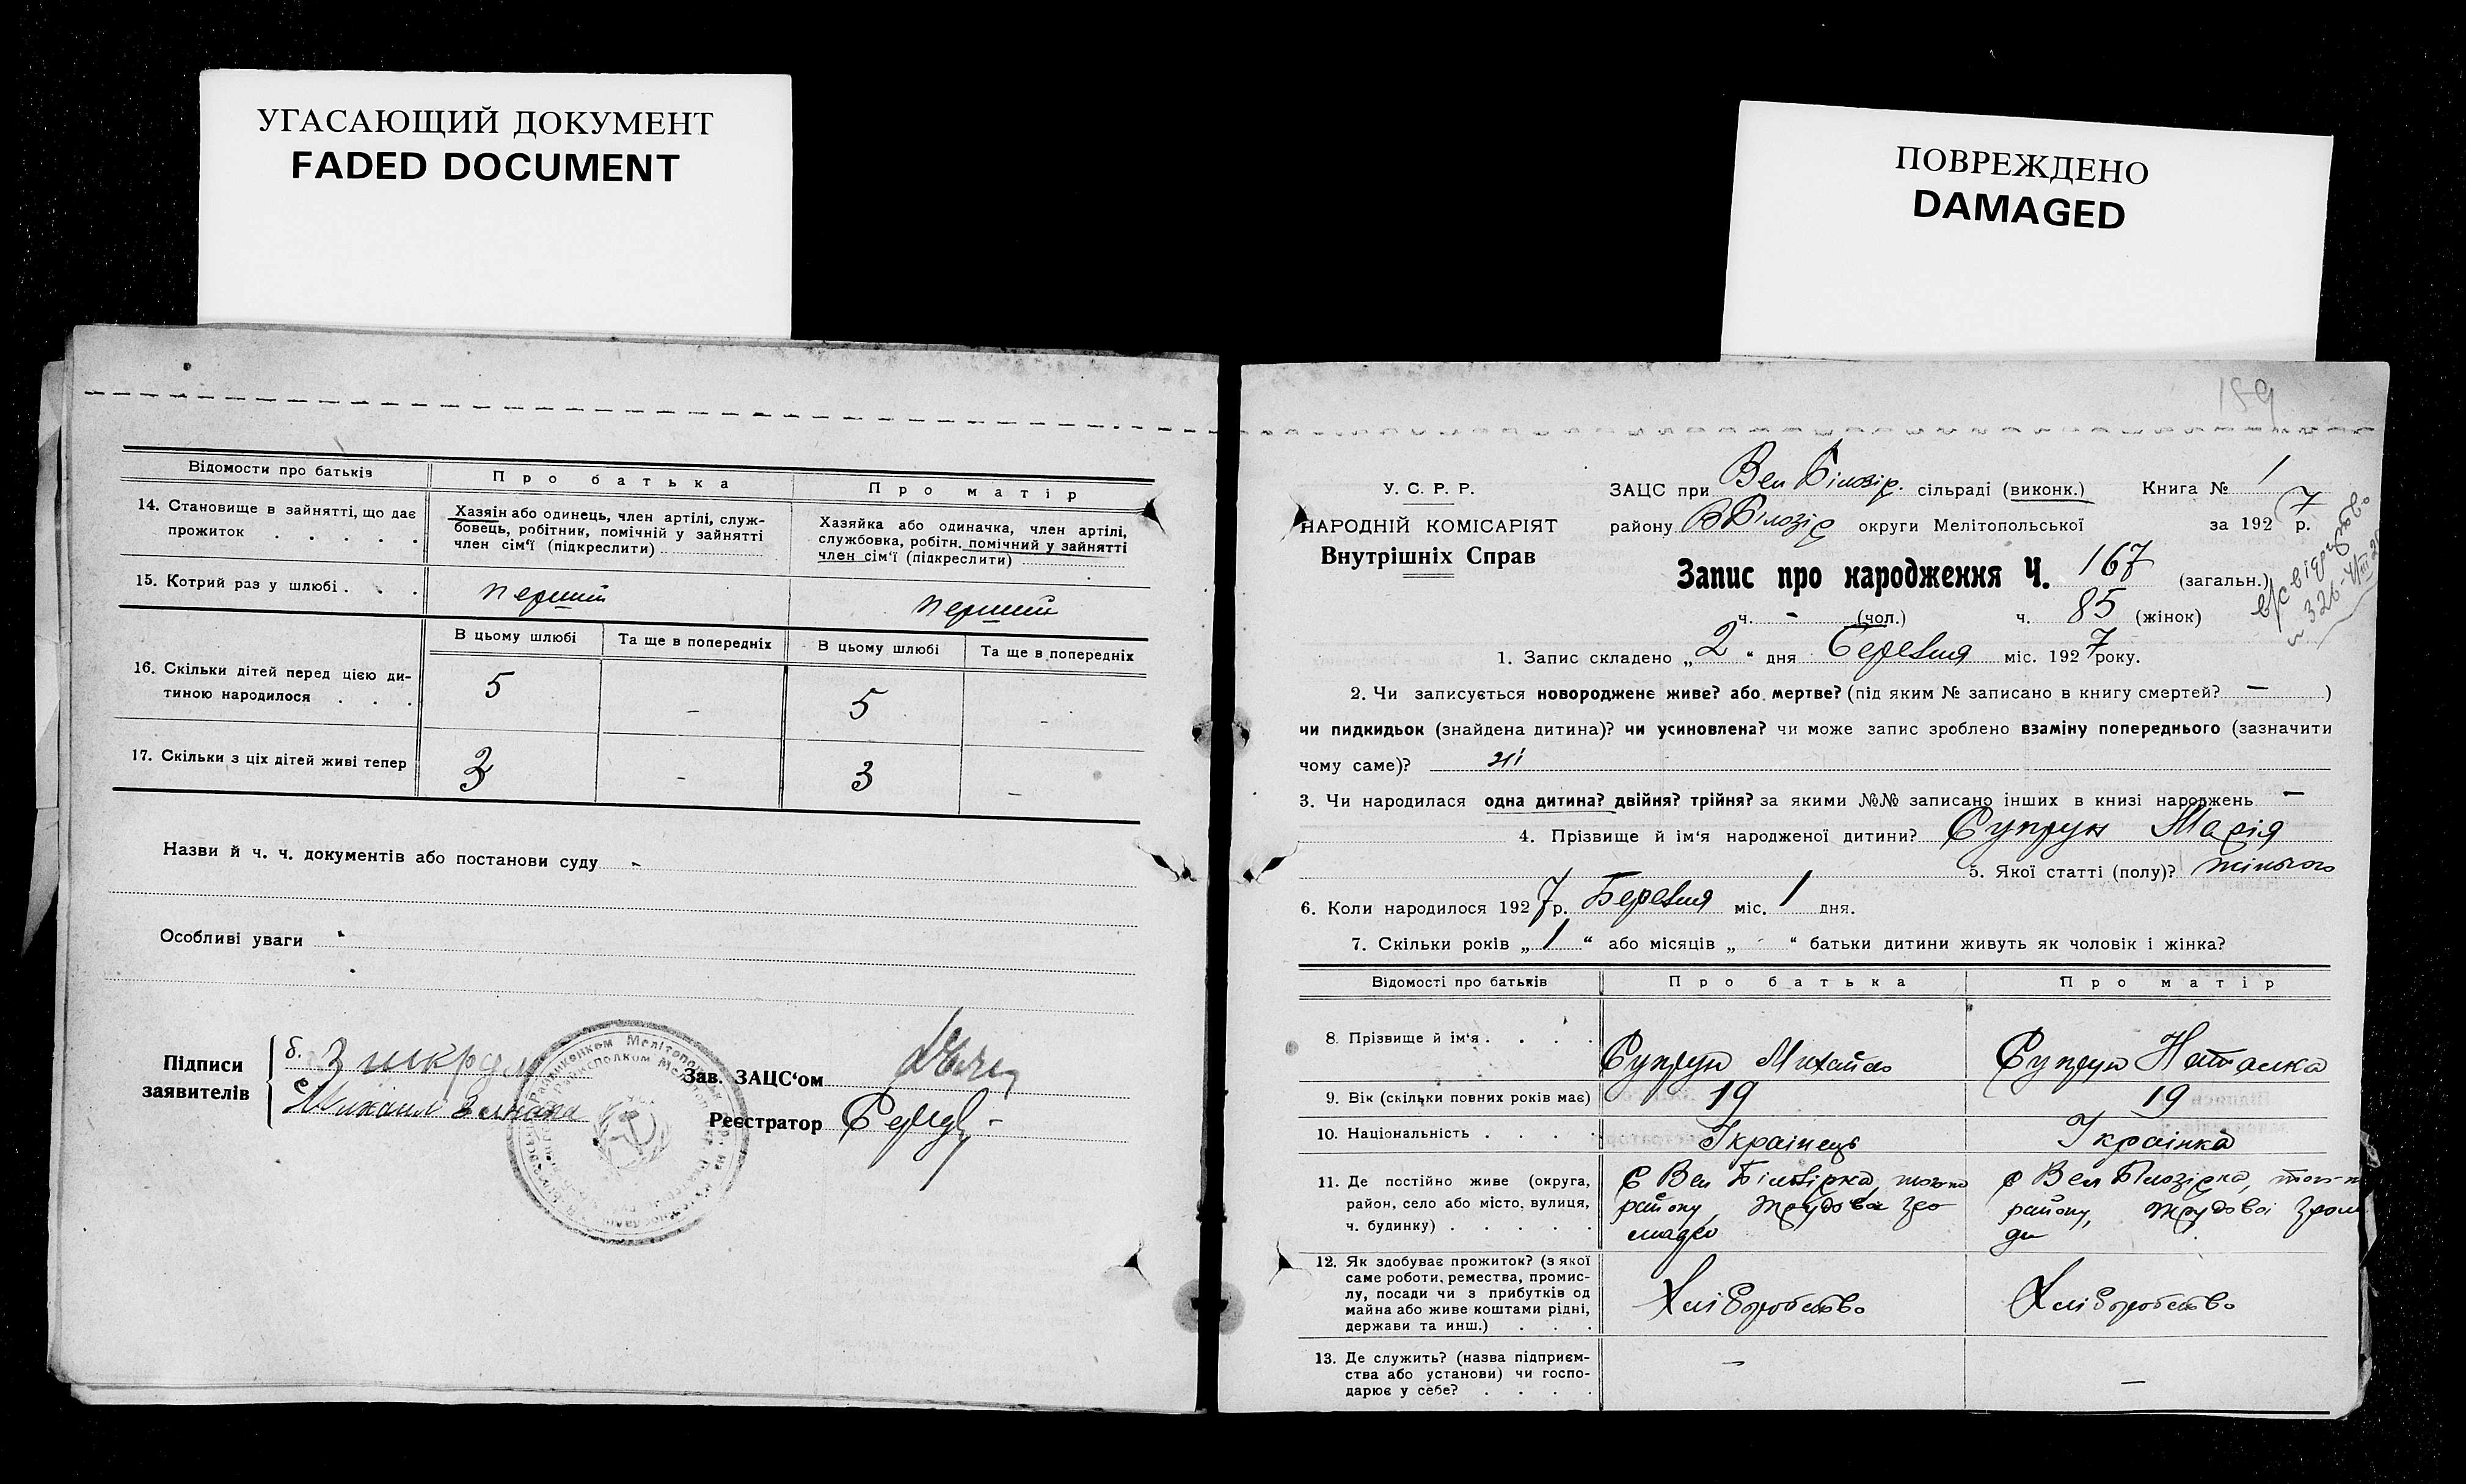 УГАСАЮЩИЙ ДОКУМЕНТ
FADED DOCUMENT
ПОВРЕЖДЕНО
DAMAGED
Відомости про батьків
Про батька
Про матір
14. Становище в зайнятті, що дає
прожиток . . . . .
Хазяін або одинець, член артілі, служ-
бовець, робітник, помічній у зайнятті
член сім'ї (підкреслити)
Хазяйка або одиначка, член артілі,
службовка, робітн. помічний у зайнятті
член сім'ї (підкреслити)
15. Котрий раз у шлюбі . . .
перший
перший
В цьому шлюбі
Та ще в попередніх
В цьому шлюбі
Та ще в попередніх
16. Скільки дітей перед цією ди-
тиною народилося . . .
5
-
5
-
17. Скільки з ціх дітей живі тепер
3
-
3
-
Назви й ч. ч. документів або постанови суду -
Особливі уваги
Підписи
заявителів
б.
Зав. ЗАЦС'ом
Реєстратор
189
У. С. Р. Р.
НАРОДНІЙ КОМІСАРІЯТ
Внутрішніх Справ
ЗАЦС при Вел Білозір. сільраді (виконк.) Книга № 1
району ВБілозір округи Мелітопольської за 1927 р.
Запис про народження Ч. 167 (загальн.)
ч. - (чол.) ч. 85 (жінок)
1. Запис складено „2“ дня Березня міс. 1927 року.
2. Чи записується новороджене живе? або мертве? (під яким № записано в книгу смертей? — )
чи пидкидьок (знайдена дитина)? чи усиновлена? чи може запис зроблено взаміну попереднього (зазначити
чому саме)? ні
3. Чи народилася одна дитина? двійня? трійня? за якими №№ записано інших в книзі народжень —
4. Прізвище й ім'я народженої дитини? Супрун Марія
5. Якої статті (полу)? жіночого
6. Коли народилося 1927 р. Березня міс. 1 дня.
7. Скільки років „1“ або місяців „-“ батьки дитини живуть як чоловік і жінка?
Відомості про батьків
Про батька
Про матір
8. Прізвище й ім'я . . . .
Супрун Михайло
Супрун Наталка
9. Вік (скільки повних років має)
19
19
10. Національність . . . .
Українець
Українка
11. Де постійно живе (округа,
район, село або місто, вулиця,
ч. будинку) . . . . .
С Вел Білозірка,
району, трудової гро
мади
с Вел Білозірка,
району, трудової гром
ди
12. Як здобуває прожиток? (з якої
саме роботи, ремества, промис-
лу, посади чи з прибутків од
майна або живе коштами рідні,
держави та инш.) . . .
Хліборобство
Хліборобство
13. Де служить? (назва підприєм-
ства або установи) чи госпо-
дарює у себе? . . . .
—
—